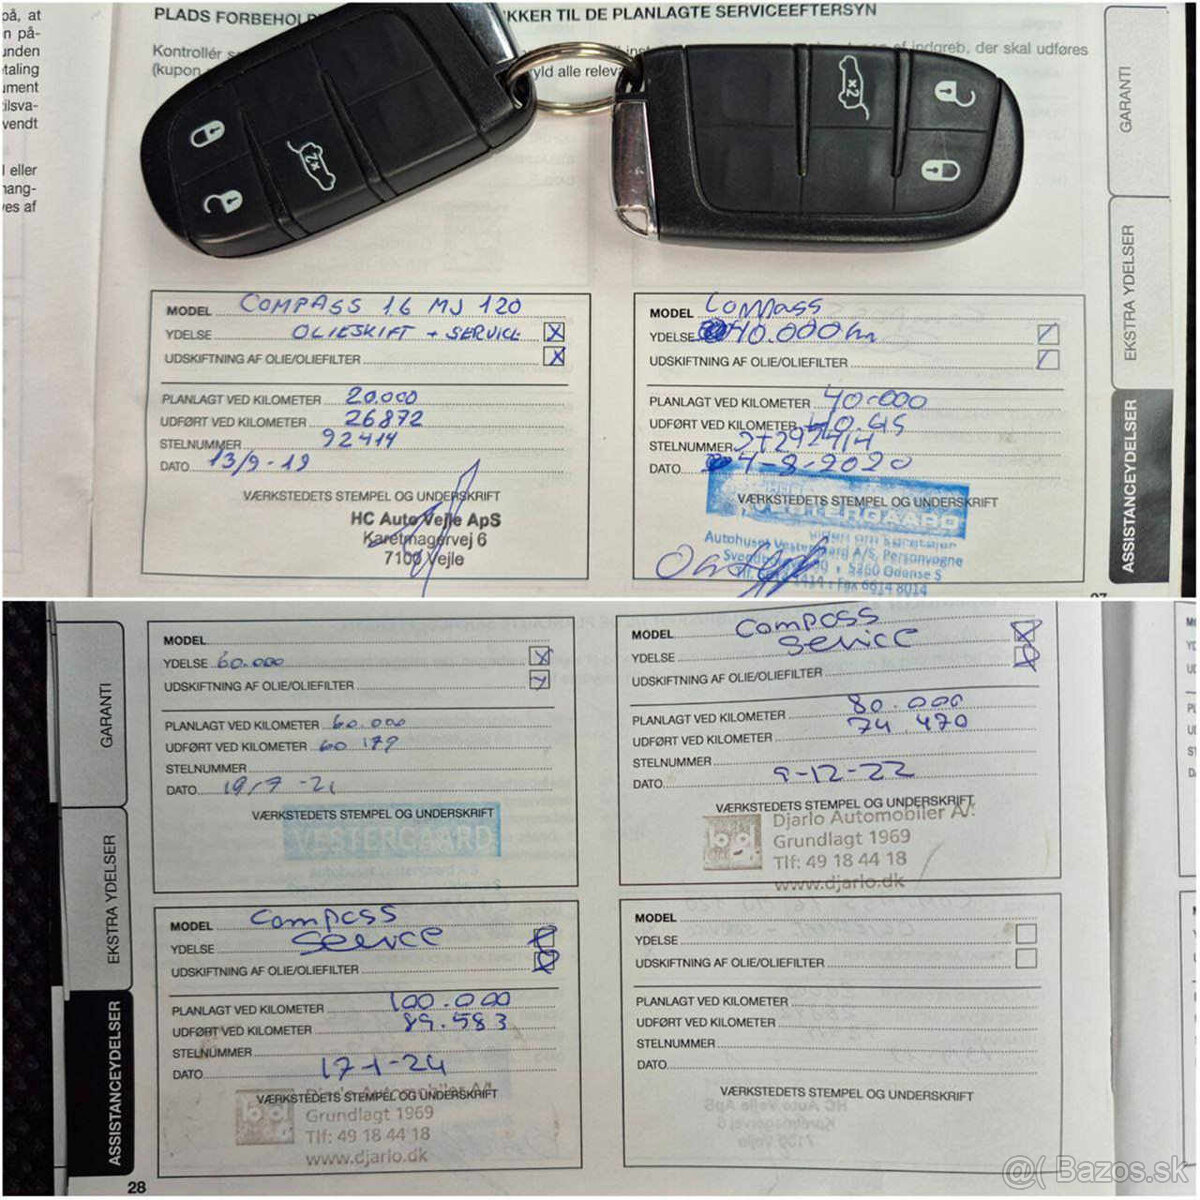 på, at
n på-
unden
taling
ument
tilsva-
vendt
l eller
hang-
es af
PLADS FORBEHOL
KKER TIL DE PLANLAGTE SERVICEEFTERSYN
Kontrollér
indgreb, der skal udføres
(kupon
yld alle relev
x2
x2
GARANTI
EKSTRA YDELSER
ASSISTANCEYDELSER
MODEL COMPASS 1.6 MJ 120
YDELSE OLIESKIFT + SERVICE X
UDSKIFTNING AF OLIE/OLIEFILTER X
PLANLAGT VED KILOMETER 20.000
UDFØRT VED KILOMETER 26872
STELNUMMER 92414
DATO 13/9-19
VÆRKSTEDETS STEMPEL OG UNDERSKRIFT
HC Auto Vejle ApS
Karetmagervej 6
7100 Vejle
MODEL Compass
YDELSE 40.000
UDSKIFTNING AF OLIE/OLIEFILTER
PLANLAGT VED KILOMETER 40.000
UDFØRT VED KILOMETER
STELNUMMER
DATO 4-8-2020
VÆRKSTEDETS STEMPEL OG UNDERSKRIFT
VESTERGAARD
Autohuset Vestergaard A/S, Personvogne
5260 Odense S
Fax 6614 8014
GARANTI
EKSTRA YDELSER
ASSISTANCEYDELSER
MODEL
YDELSE 60.000 X
UDSKIFTNING AF OLIE/OLIEFILTER
PLANLAGT VED KILOMETER 60.000
UDFØRT VED KILOMETER 60 179
STELNUMMER
DATO 19/7-21
VÆRKSTEDETS STEMPEL OG UNDERSKRIFT
VESTERGAARD
MODEL Compass
YDELSE Service
UDSKIFTNING AF OLIE/OLIEFILTER
PLANLAGT VED KILOMETER 80.000
UDFØRT VED KILOMETER 74 470
STELNUMMER
DATO 9-12-22
VÆRKSTEDETS STEMPEL OG UNDERSKRIFT
Djarlo Automobiler A/
Grundlagt 1969
Tlf: 49 18 44 18
www.djarlo.dk
MODEL Compass
YDELSE Service
UDSKIFTNING AF OLIE/OLIEFILTER
PLANLAGT VED KILOMETER 100.000
UDFØRT VED KILOMETER 89.583
STELNUMMER
DATO 17-1-24
VÆRKSTEDETS STEMPEL OG UNDERSKRIFT
Djarlo Automobiler A/
Grundlagt 1969
Tlf: 49 18 44 18
www.djarlo.dk
MODEL
YDELSE
UDSKIFTNING AF OLIE/OLIEFILTER
PLANLAGT VED KILOMETER
UDFØRT VED KILOMETER
STELNUMMER
DATO
VÆRKSTEDETS STEMPEL OG UNDERSKRIFT
28
Bazos.sk